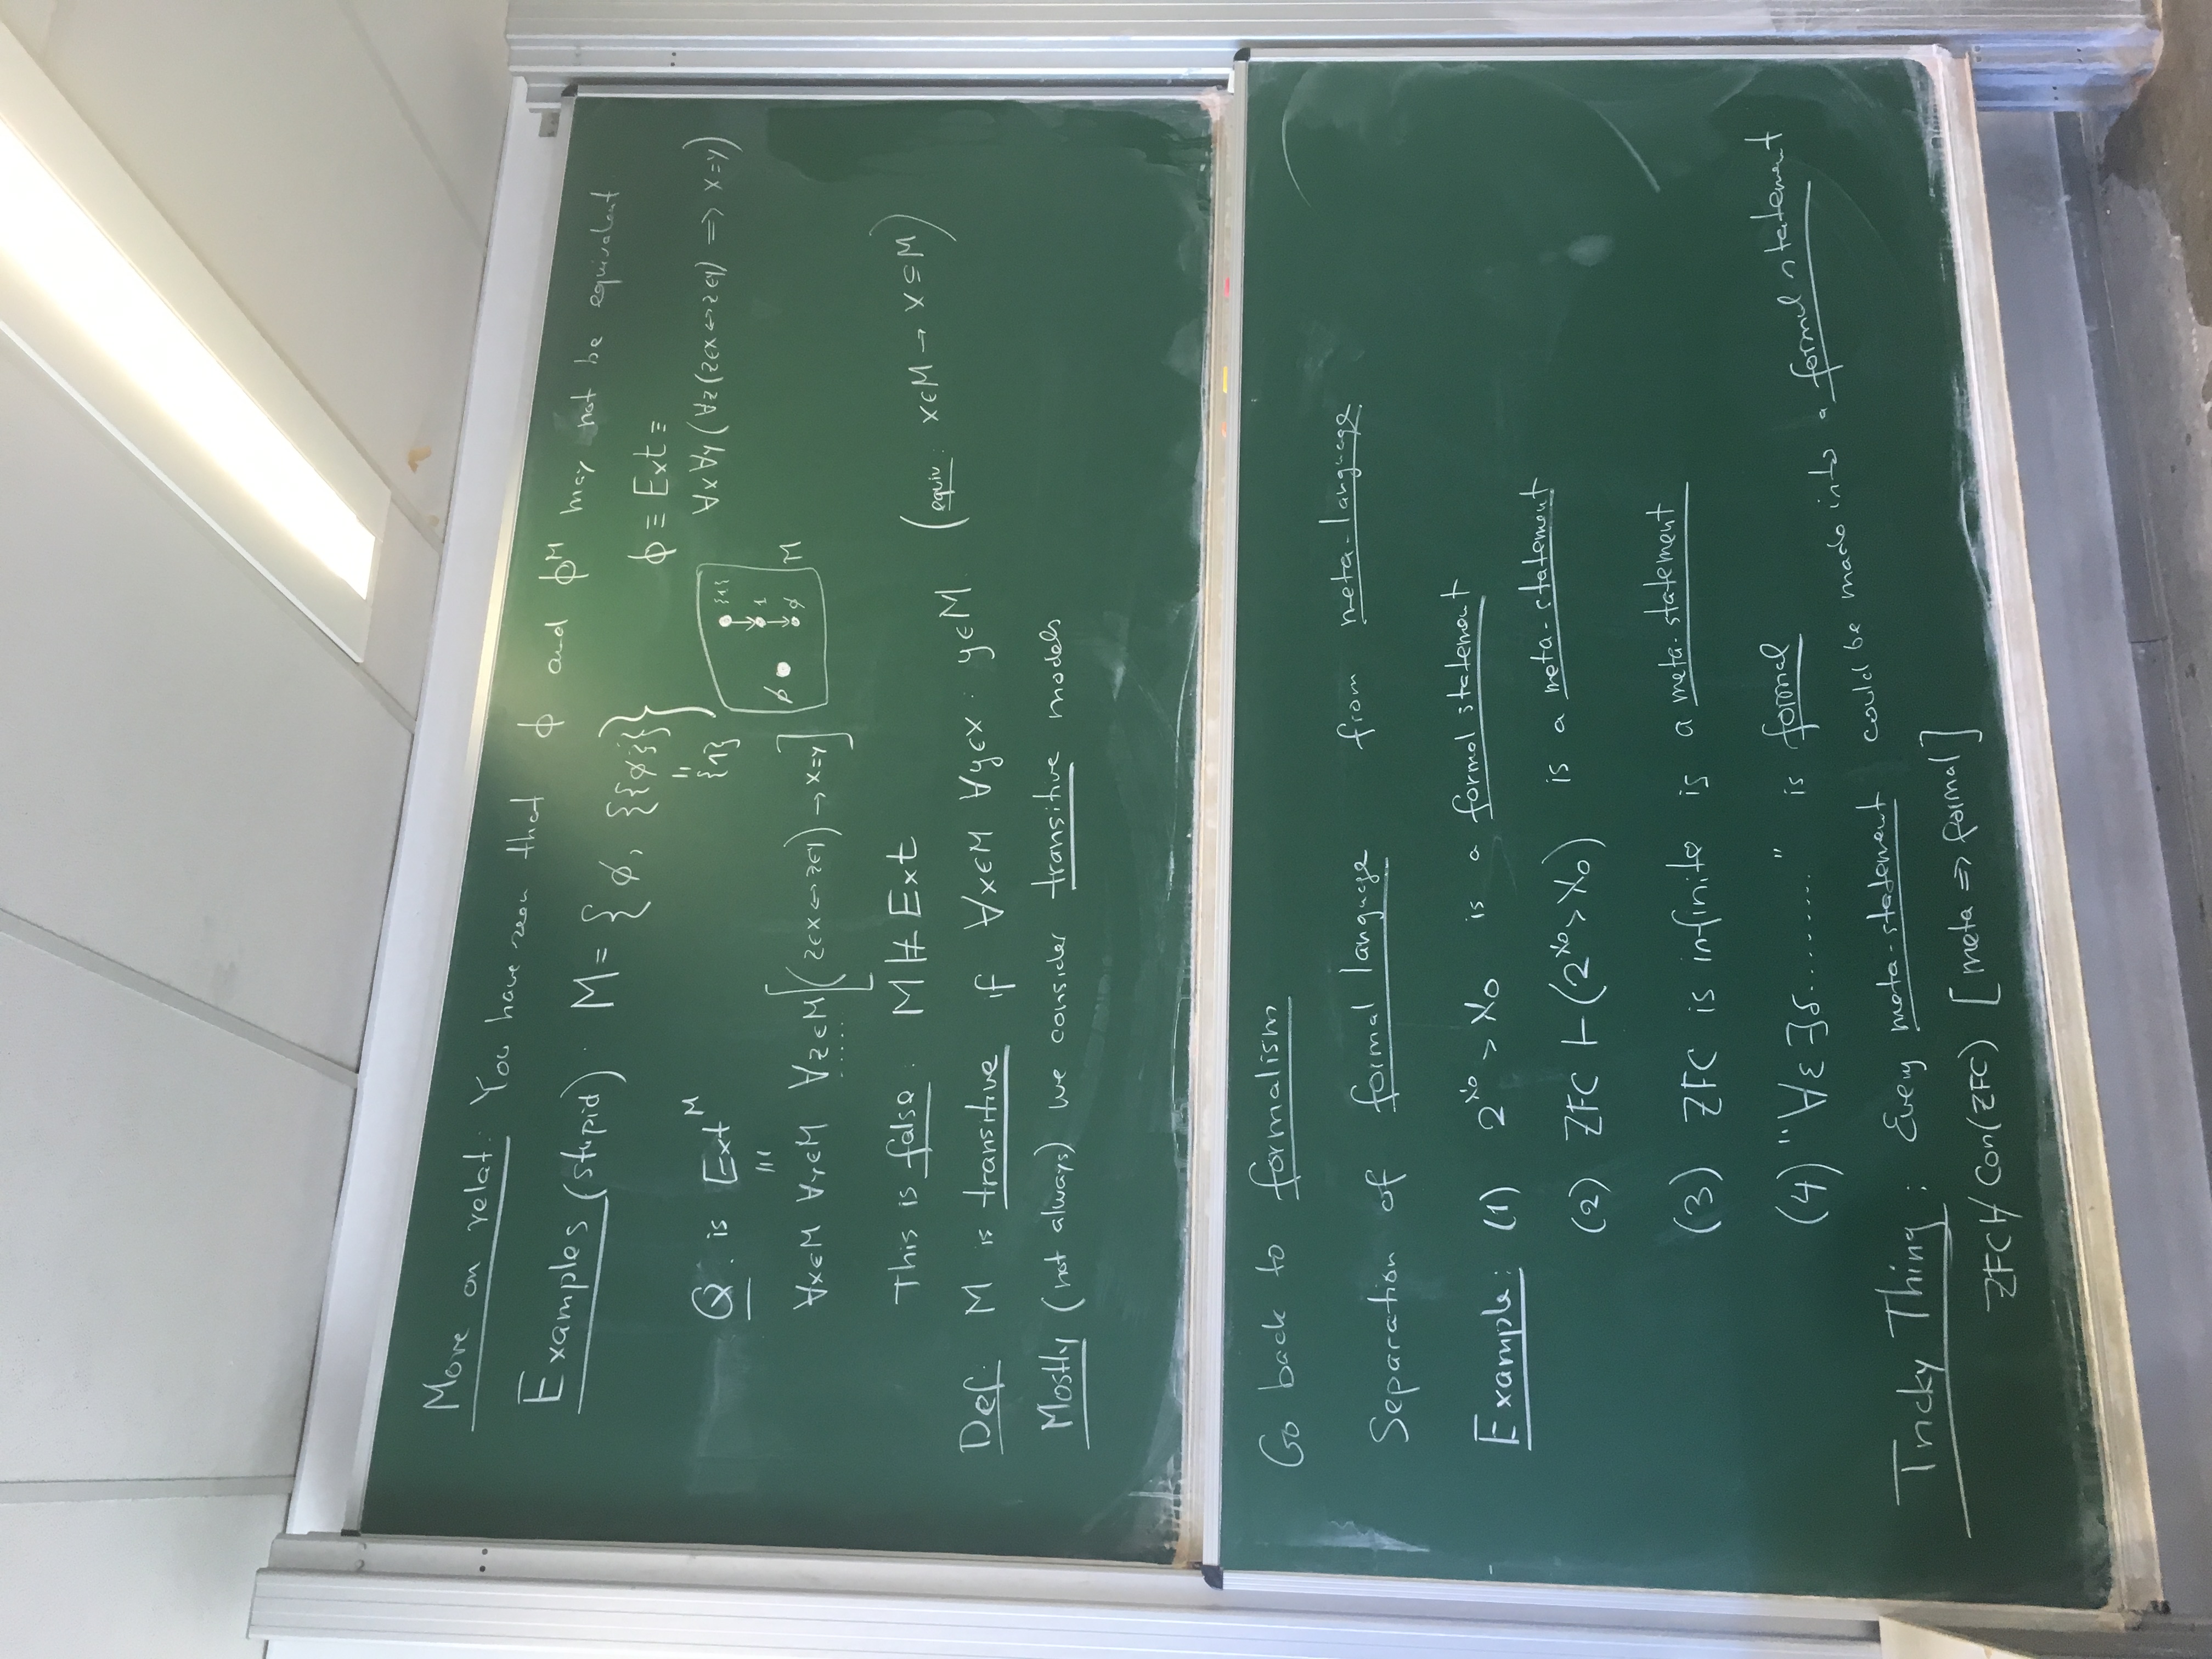 More on relat.: You have seen that ϕ and ϕᴹ may not be equivalent
Examples (stupid). M = {∅, {{∅}}}
"
{1}
ϕ ≡ Ext ≡
∀x∀y(∀z(z∈x↔z∈y) ⇒ x=y)
∅ {1} 1 ∅ M
Q: is Extᴹ
≡
∀x∈M ∀y∈M ∀z∈M[(z∈x↔z∈y) → x=y]
This is false: M ⊭ Ext
Def: M is transitive if ∀x∈M ∀y∈x: y∈M. (equiv: x∈M → x⊆M)
Mostly (not always) we consider transitive models
Go back to formalism
Separation of formal language from meta-language.
Example: (1) 2^ℵ₀ > ℵ₀ is a formal statement
(2) ZFC ⊢ (2^ℵ₀ > ℵ₀) is a meta-statement
(3) ZFC is infinite is a meta-statement
(4) "∀ε ∃δ ........ " is formal
Tricky Thing: Every meta-statement could be made into a formal statement
ZFC ⊬ Con(ZFC) [meta ⇒ formal]